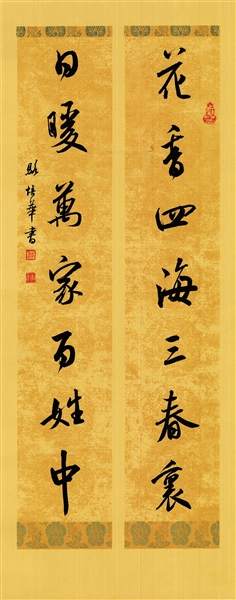 花香四海三春裏
日暖萬家百姓中
培華書